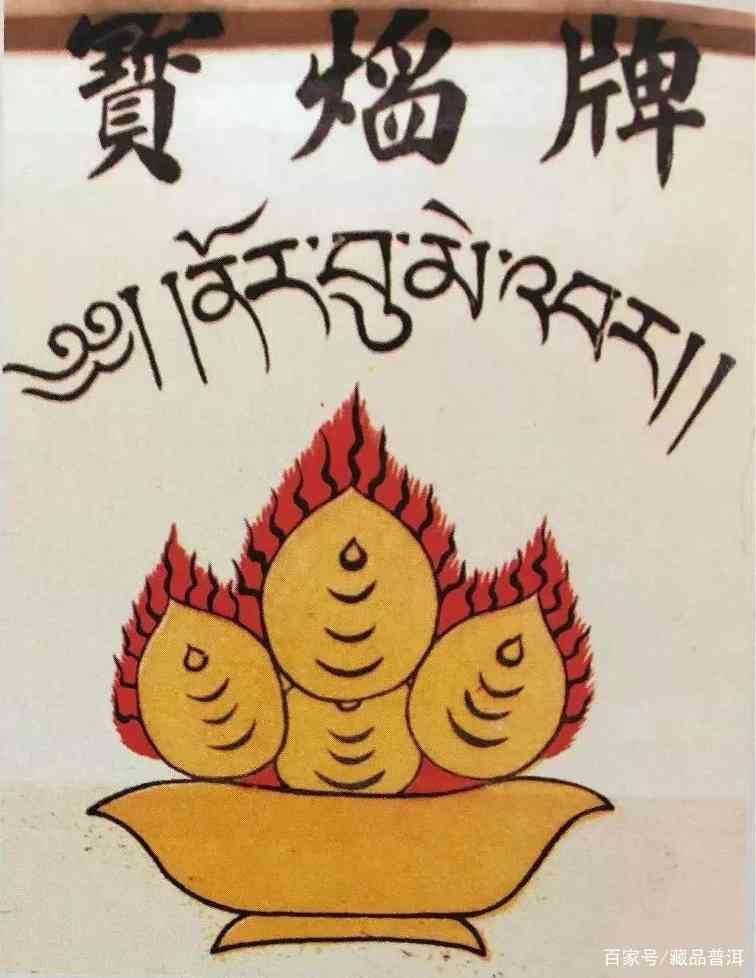 寶焰牌
༄༅། །ནོར་བུ་མེ་འབར།།
百家号/藏品普洱